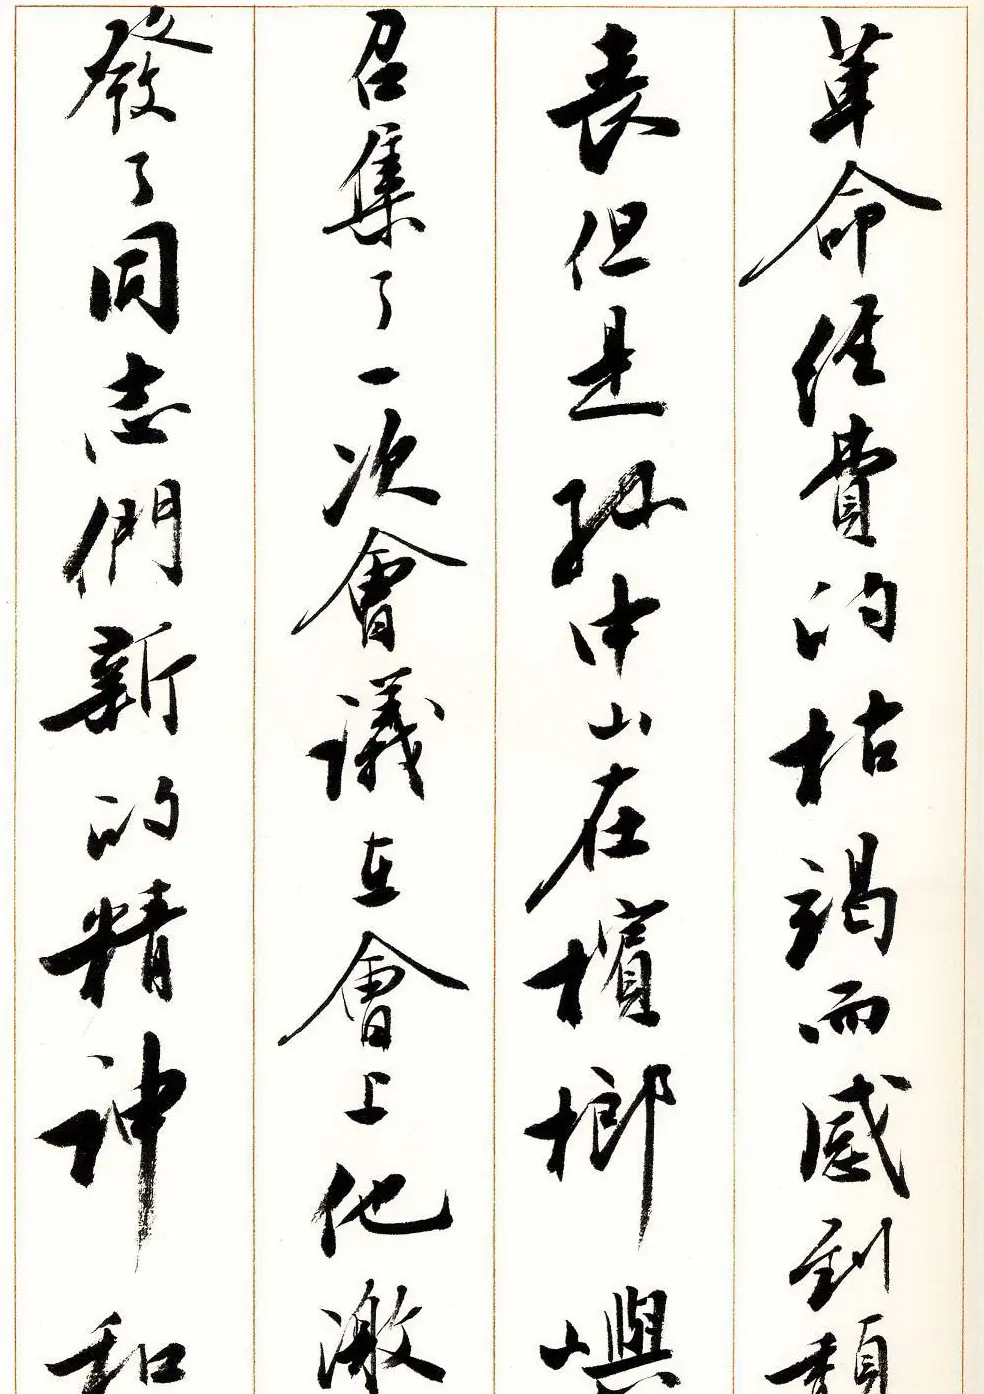 革命經費的枯竭而感到頹
喪但是孫中山在檳榔嶼
召集了一次會議在會上他激
發了同志們新的精神和